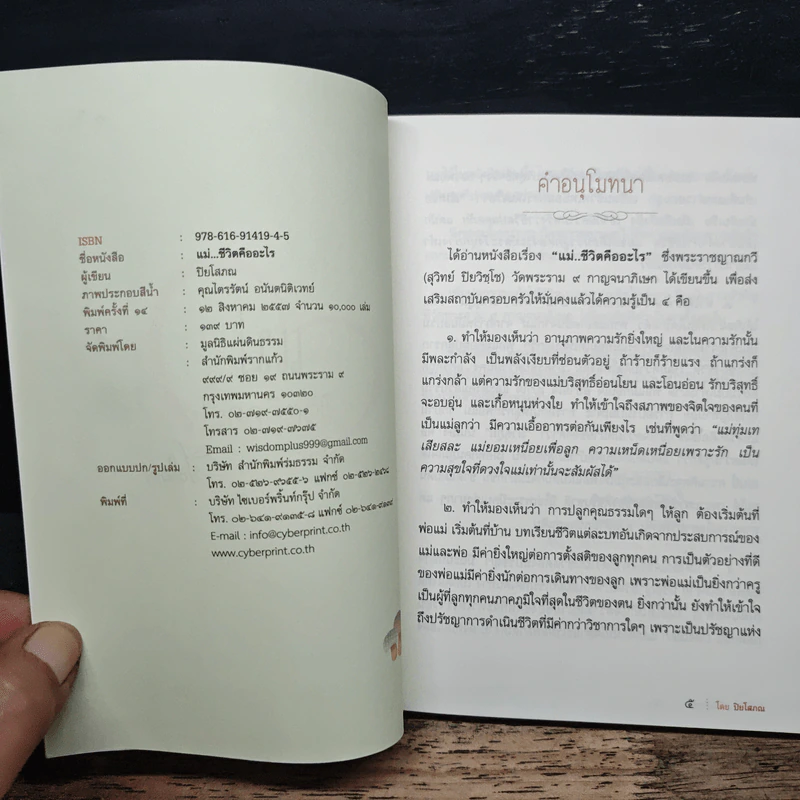 ISBN : 978-616-91419-4-5
ชื่อหนังสือ : แม่...ชีวิตคืออะไร
ผู้เขียน : ปิยโสภณ
ภาพประกอบสีน้ำ : คุณไตรรัตน์ อนันตนิติเวทย์
พิมพ์ครั้งที่ ๑๔ : ๑๒ สิงหาคม ๒๕๕๗ จำนวน ๑๐,๐๐๐ เล่ม
ราคา : ๑๓๙ บาท
จัดพิมพ์โดย : มูลนิธิแผ่นดินธรรม
: สำนักพิมพ์รากแก้ว
๙๙๙/๙ ซอย ๑๙ ถนนพระราม ๙
กรุงเทพมหานคร ๑๐๓๒๐
โทร. ๐๒-๗๑๙-๗๕๕๐-๑
โทรสาร ๐๒-๗๑๙-๗๖๗๕
Email : wisdomplus999@gmail.com
ออกแบบปก/รูปเล่ม : บริษัท สำนักพิมพ์ร่มธรรม จำกัด
โทร. ๐๒-๕๒๖-๙๖๕๕-๖ แฟกซ์ ๐๒-๕๒๖-๒๘๕๘
พิมพ์ที่ : บริษัท ไซเบอร์พริ้นท์กรุ๊ป จำกัด
โทร. ๐๒-๖๔๑-๙๑๓๕-๘ แฟกซ์ ๐๒-๖๔๑-๙๑๓๙
E-mail : info@cyberprint.co.th
www.cyberprint.co.th
คำอนุโมทนา
ได้อ่านหนังสือเรื่อง "แม่..ชีวิตคืออะไร" ซึ่งพระราชญาณกวี
(สุวิทย์ ปิยวิชฺโช) วัดพระราม ๙ กาญจนาภิเษก ได้เขียนขึ้น เพื่อส่ง
เสริมสถาบันครอบครัวให้มั่นคงแล้วได้ความรู้เป็น ๔ คือ
๑. ทำให้มองเห็นว่า อานุภาพความรักยิ่งใหญ่ และในความรักนั้น
มีพละกำลัง เป็นพลังเงียบที่ซ่อนตัวอยู่ ถ้าร้ายก็ร้ายแรง ถ้าแกร่งก็
แกร่งกล้า แต่ความรักของแม่บริสุทธิ์อ่อนโยน และโอนอ่อน รักบริสุทธิ์
จะอบอุ่น และเกื้อหนุนห่วงใย ทำให้เข้าใจถึงสภาพของจิตใจของคนที่
เป็นแม่ลูกว่า มีความเอื้ออาทรต่อกันเพียงไร เช่นที่พูดว่า "แม่ทุ่มเท
เสียสละ แม่ยอมเหนื่อยเพื่อลูก ความเหน็ดเหนื่อยเพราะรัก เป็น
ความสุขใจที่ดวงใจแม่เท่านั้นจะสัมผัสได้"
๒. ทำให้มองเห็นว่า การปลูกคุณธรรมใดๆ ให้ลูก ต้องเริ่มต้นที่
พ่อแม่ เริ่มต้นที่บ้าน บทเรียนชีวิตแต่ละบทอันเกิดจากประสบการณ์ของ
แม่และพ่อ มีค่ายิ่งใหญ่ต่อการตั้งสติของลูกทุกคน การเป็นตัวอย่างที่ดี
ของพ่อแม่มีค่ายิ่งนักต่อการเดินทางของลูก เพราะพ่อแม่เป็นยิ่งกว่าครู
เป็นผู้ที่ลูกทุกคนภาคภูมิใจที่สุดในชีวิตของตน ยิ่งกว่านั้น ยังทำให้เข้าใจ
ถึงปรัชญาการดำเนินชีวิตที่มีค่ากว่าวิชาการใดๆ เพราะเป็นปรัชญาแห่ง
๕ โดย ปิยโสภณ